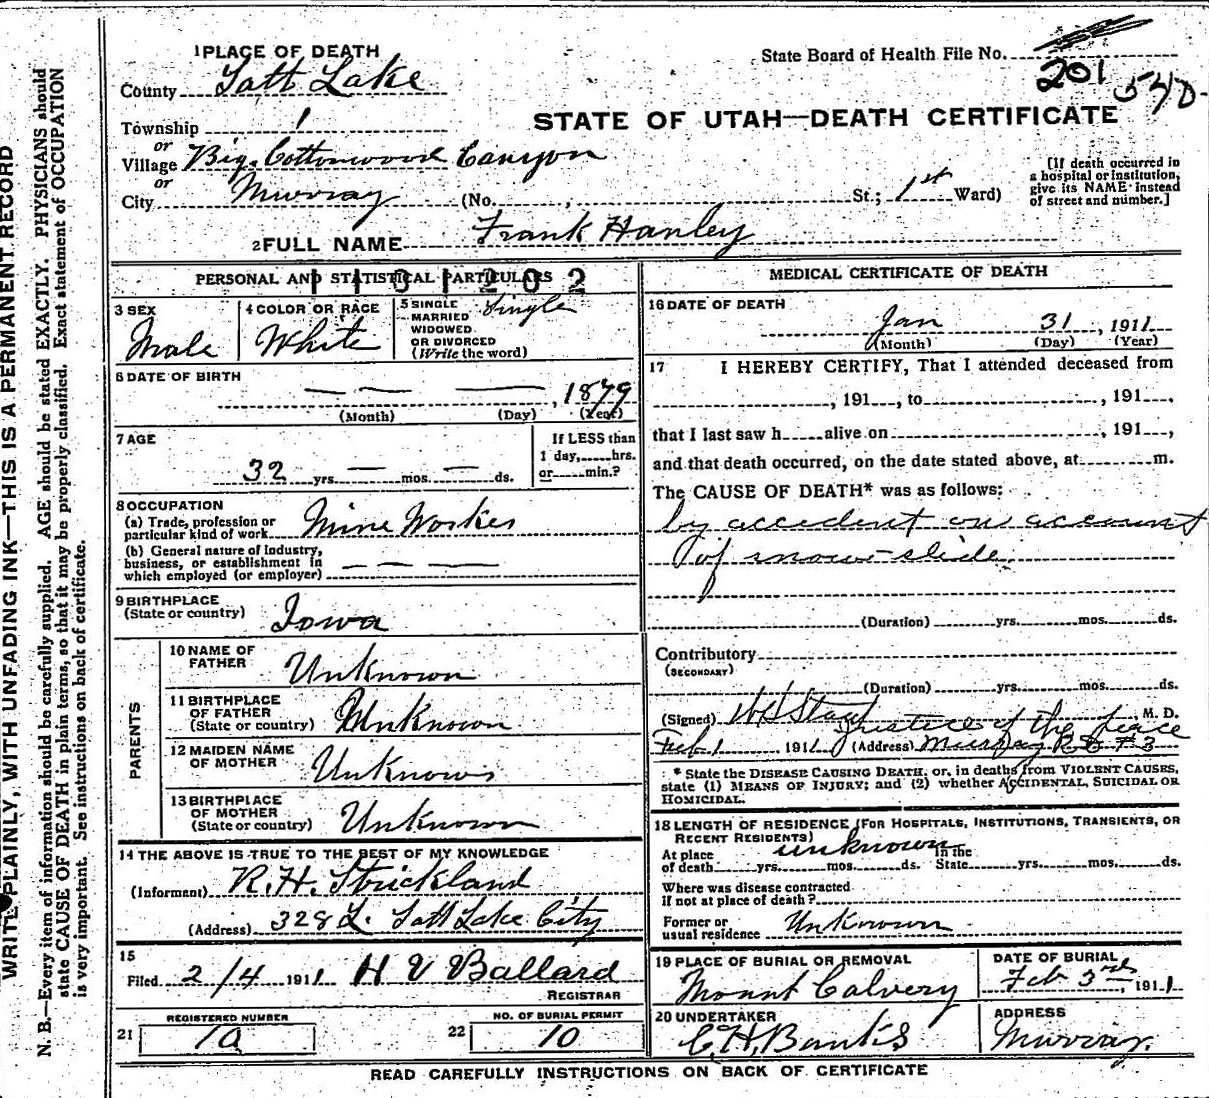 WRITE PLAINLY, WITH UNFADING INK—THIS IS A PERMANENT RECORD
N. B.—Every item of information should be carefully supplied. AGE should be stated EXACTLY. PHYSICIANS should
state CAUSE OF DEATH in plain terms, so that it may be properly classified. Exact statement of OCCUPATION
is very important. See instructions on back of certificate.
1 PLACE OF DEATH
State Board of Health File No. 201
540
County Salt Lake
STATE OF UTAH—DEATH CERTIFICATE
Township 1
or
Village Big Cottonwood Canyon
or
City Murray (No. , St.; 1st Ward)
[If death occurred in
a hospital or institution,
give its NAME instead
of street and number.]
2 FULL NAME Frank Hanley
PERSONAL AND STATISTICAL PARTICULARS
1101202
3 SEX
Male
4 COLOR OR RACE
White
5 SINGLE
MARRIED
WIDOWED
OR DIVORCED
(Write the word)
Single
6 DATE OF BIRTH
— — —, 1879
(Month) (Day) (Year)
7 AGE
32 yrs. — mos. — ds.
If LESS than
1 day, hrs.
or min.?
8 OCCUPATION
(a) Trade, profession or
particular kind of work Mine Worker
(b) General nature of industry,
business, or establishment in
which employed (or employer) — — —
9 BIRTHPLACE
(State or country) Iowa
PARENTS
10 NAME OF
FATHER Unknown
11 BIRTHPLACE
OF FATHER
(State or country) Unknown
12 MAIDEN NAME
OF MOTHER Unknown
13 BIRTHPLACE
OF MOTHER
(State or country) Unknown
14 THE ABOVE IS TRUE TO THE BEST OF MY KNOWLEDGE
(Informant) R. H. Strickland
(Address) 328 Salt Lake City
15
Filed 2/4 1911 H V Ballard
REGISTRAR
21 REGISTERED NUMBER
10
22 NO. OF BURIAL PERMIT
10
MEDICAL CERTIFICATE OF DEATH
16 DATE OF DEATH
Jan 31, 1911
(Month) (Day) (Year)
17 I HEREBY CERTIFY, That I attended deceased from
, 191 , to , 191 ,
that I last saw h alive on , 191 ,
and that death occurred, on the date stated above, at m.
The CAUSE OF DEATH* was as follows:
by accedent on account
of snow-slide
(Duration) yrs. mos. ds.
Contributory
(SECONDARY)
(Duration) yrs. mos. ds.
(Signed) M. D.
Justice of the peace
Feb 1 1911 (Address) Murray R D # 3
* State the DISEASE CAUSING DEATH, or, in deaths from VIOLENT CAUSES,
state (1) MEANS OF INJURY; and (2) whether ACCIDENTAL, SUICIDAL OR
HOMICIDAL.
18 LENGTH OF RESIDENCE (FOR HOSPITALS, INSTITUTIONS, TRANSIENTS, OR
RECENT RESIDENTS)
unknown
At place
of death yrs. mos. ds.
In the
State yrs. mos. ds.
Where was disease contracted
if not at place of death?
Former or
usual residence Unknown
19 PLACE OF BURIAL OR REMOVAL
Mount Calvery
DATE OF BURIAL
Feb 3rd, 1911
20 UNDERTAKER
C. H. Banks
ADDRESS
Murray.
READ CAREFULLY INSTRUCTIONS ON BACK OF CERTIFICATE